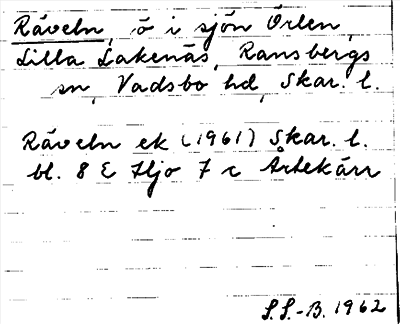 Råveln, ö i sjön Örlen,
Lilla Lakenäs, Ransbergs
sn, Vadsbo hd, Skar. l.
Råveln ek (1961) Skar. l.
bl. 8 E Hjo 7 c Årtekärr
S.S.-B. 1962